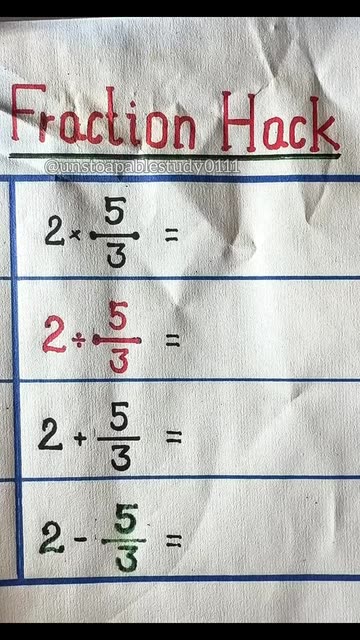 Fraction Hack
@unstoapablestudy0111
2 × 5/3 =
2 ÷ 5/3 =
2 + 5/3 =
2 - 5/3 =